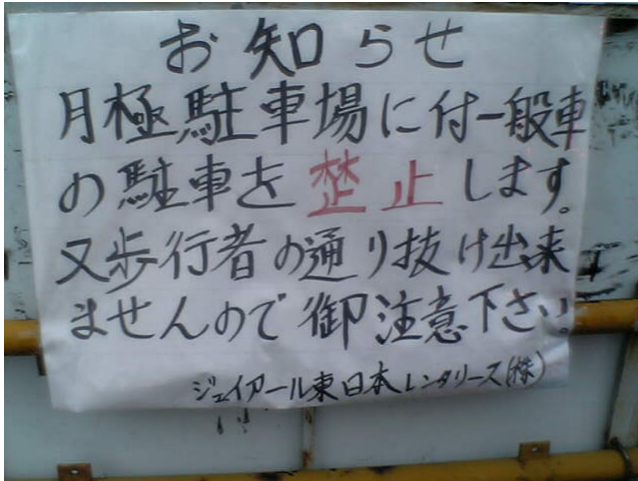 お知らせ
月極駐車場に付一般車
の駐車を禁止します。
又歩行者の通り抜け出来
ませんので御注意下さい。
ジェイアール東日本レンタリース(株)